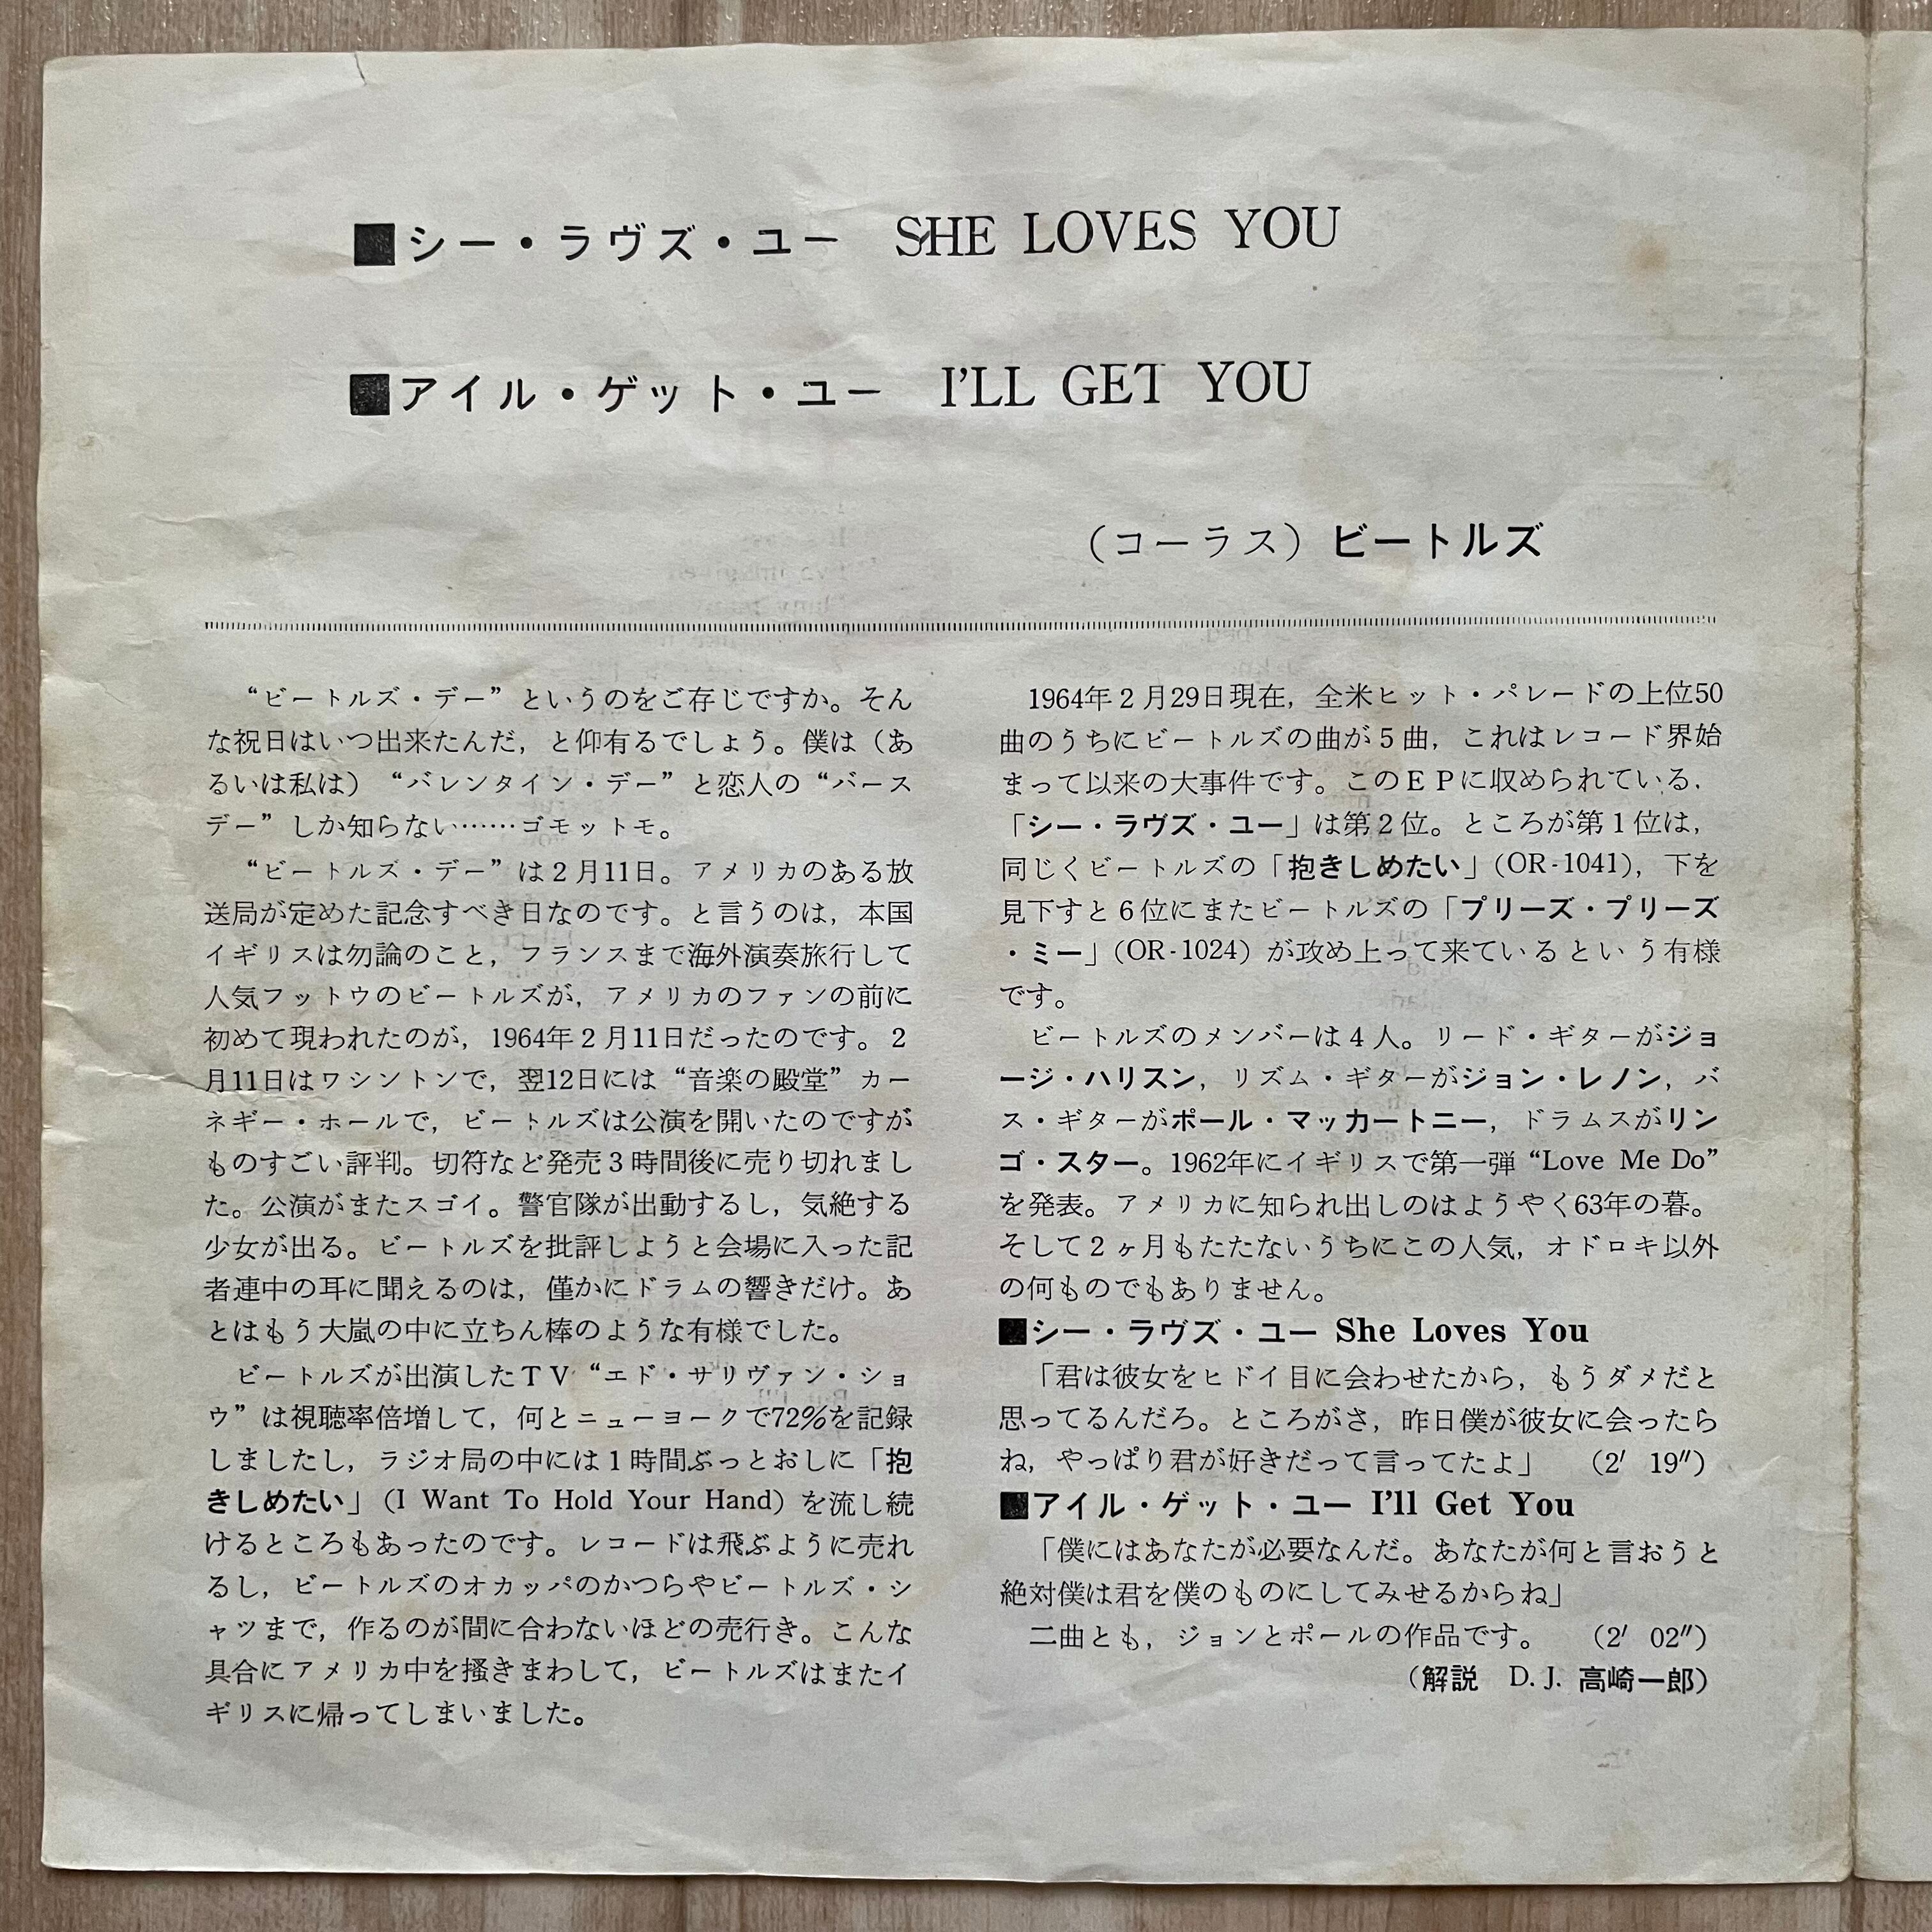 ■シー・ラヴズ・ユー　SHE LOVES YOU
■アイル・ゲット・ユー　I'LL GET YOU
（コーラス）ビートルズ
“ビートルズ・デー”というのをご存じですか。そん
な祝日はいつ出来たんだ，と仰有るでしょう。僕は（あ
るいは私は）“バレンタイン・デー”と恋人の“バース
デー”しか知らない……ゴモットモ。
“ビートルズ・デー”は2月11日。アメリカのある放
送局が定めた記念すべき日なのです。と言うのは，本国
イギリスは勿論のこと，フランスまで海外演奏旅行して
人気フットウのビートルズが，アメリカのファンの前に
初めて現われたのが，1964年2月11日だったのです。2
月11日はワシントンで，翌12日には“音楽の殿堂”カー
ネギー・ホールで，ビートルズは公演を開いたのですが
ものすごい評判。切符など発売3時間後に売り切れまし
た。公演がまたスゴイ。警官隊が出動するし，気絶する
少女が出る。ビートルズを批評しようと会場に入った記
者連中の耳に聞えるのは，僅かにドラムの響きだけ。あ
とはもう大嵐の中に立ちん棒のような有様でした。
ビートルズが出演したTV“エド・サリヴァン・ショ
ウ”は視聴率倍増して，何とニューヨークで72％を記録
しましたし，ラジオ局の中には1時間ぶっとおしに「抱
きしめたい」（I Want To Hold Your Hand）を流し続
けるところもあったのです。レコードは飛ぶように売れ
るし，ビートルズのオカッパのかつらやビートルズ・シ
ャツまで，作るのが間に合わないほどの売行き。こんな
具合にアメリカ中を掻きまわして，ビートルズはまたイ
ギリスに帰ってしまいました。
1964年2月29日現在，全米ヒット・パレードの上位50
曲のうちにビートルズの曲が5曲，これはレコード界始
まって以来の大事件です。このEPに収められている，
「シー・ラヴズ・ユー」は第2位。ところが第1位は，
同じくビートルズの「抱きしめたい」（OR-1041），下を
見下すと6位にまたビートルズの「プリーズ・プリーズ
・ミー」（OR-1024）が攻め上って来ているという有様
です。
ビートルズのメンバーは4人。リード・ギターがジョ
ージ・ハリスン，リズム・ギターがジョン・レノン，バ
ス・ギターがポール・マッカートニー，ドラムスがリン
ゴ・スター。1962年にイギリスで第一弾“Love Me Do”
を発表。アメリカに知られ出しのはようやく63年の暮。
そして2ヶ月もたたないうちにこの人気，オドロキ以外
の何ものでもありません。
■シー・ラヴズ・ユー She Loves You
「君は彼女をヒドイ目に会わせたから，もうダメだと
思ってるんだろ。ところがさ，昨日僕が彼女に会ったら
ね，やっぱり君が好きだって言ってたよ」　（2′ 19″）
■アイル・ゲット・ユー I'll Get You
「僕にはあなたが必要なんだ。あなたが何と言おうと
絶対僕は君を僕のものにしてみせるからね」
二曲とも，ジョンとポールの作品です。　（2′ 02″）
（解説　D.J. 高崎一郎）